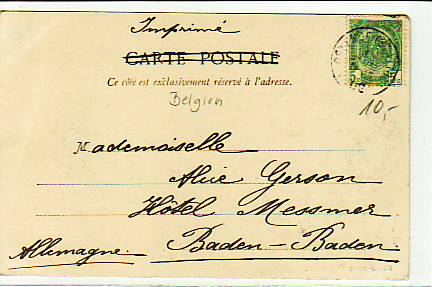 Imprimé
CARTE POSTALE
Ce côté est exclusivement réservé à l'adresse.
Belgien
10,-
Mademoiselle
Alice Gerson
Hôtel Messmer
Baden-Baden
Allemagne.